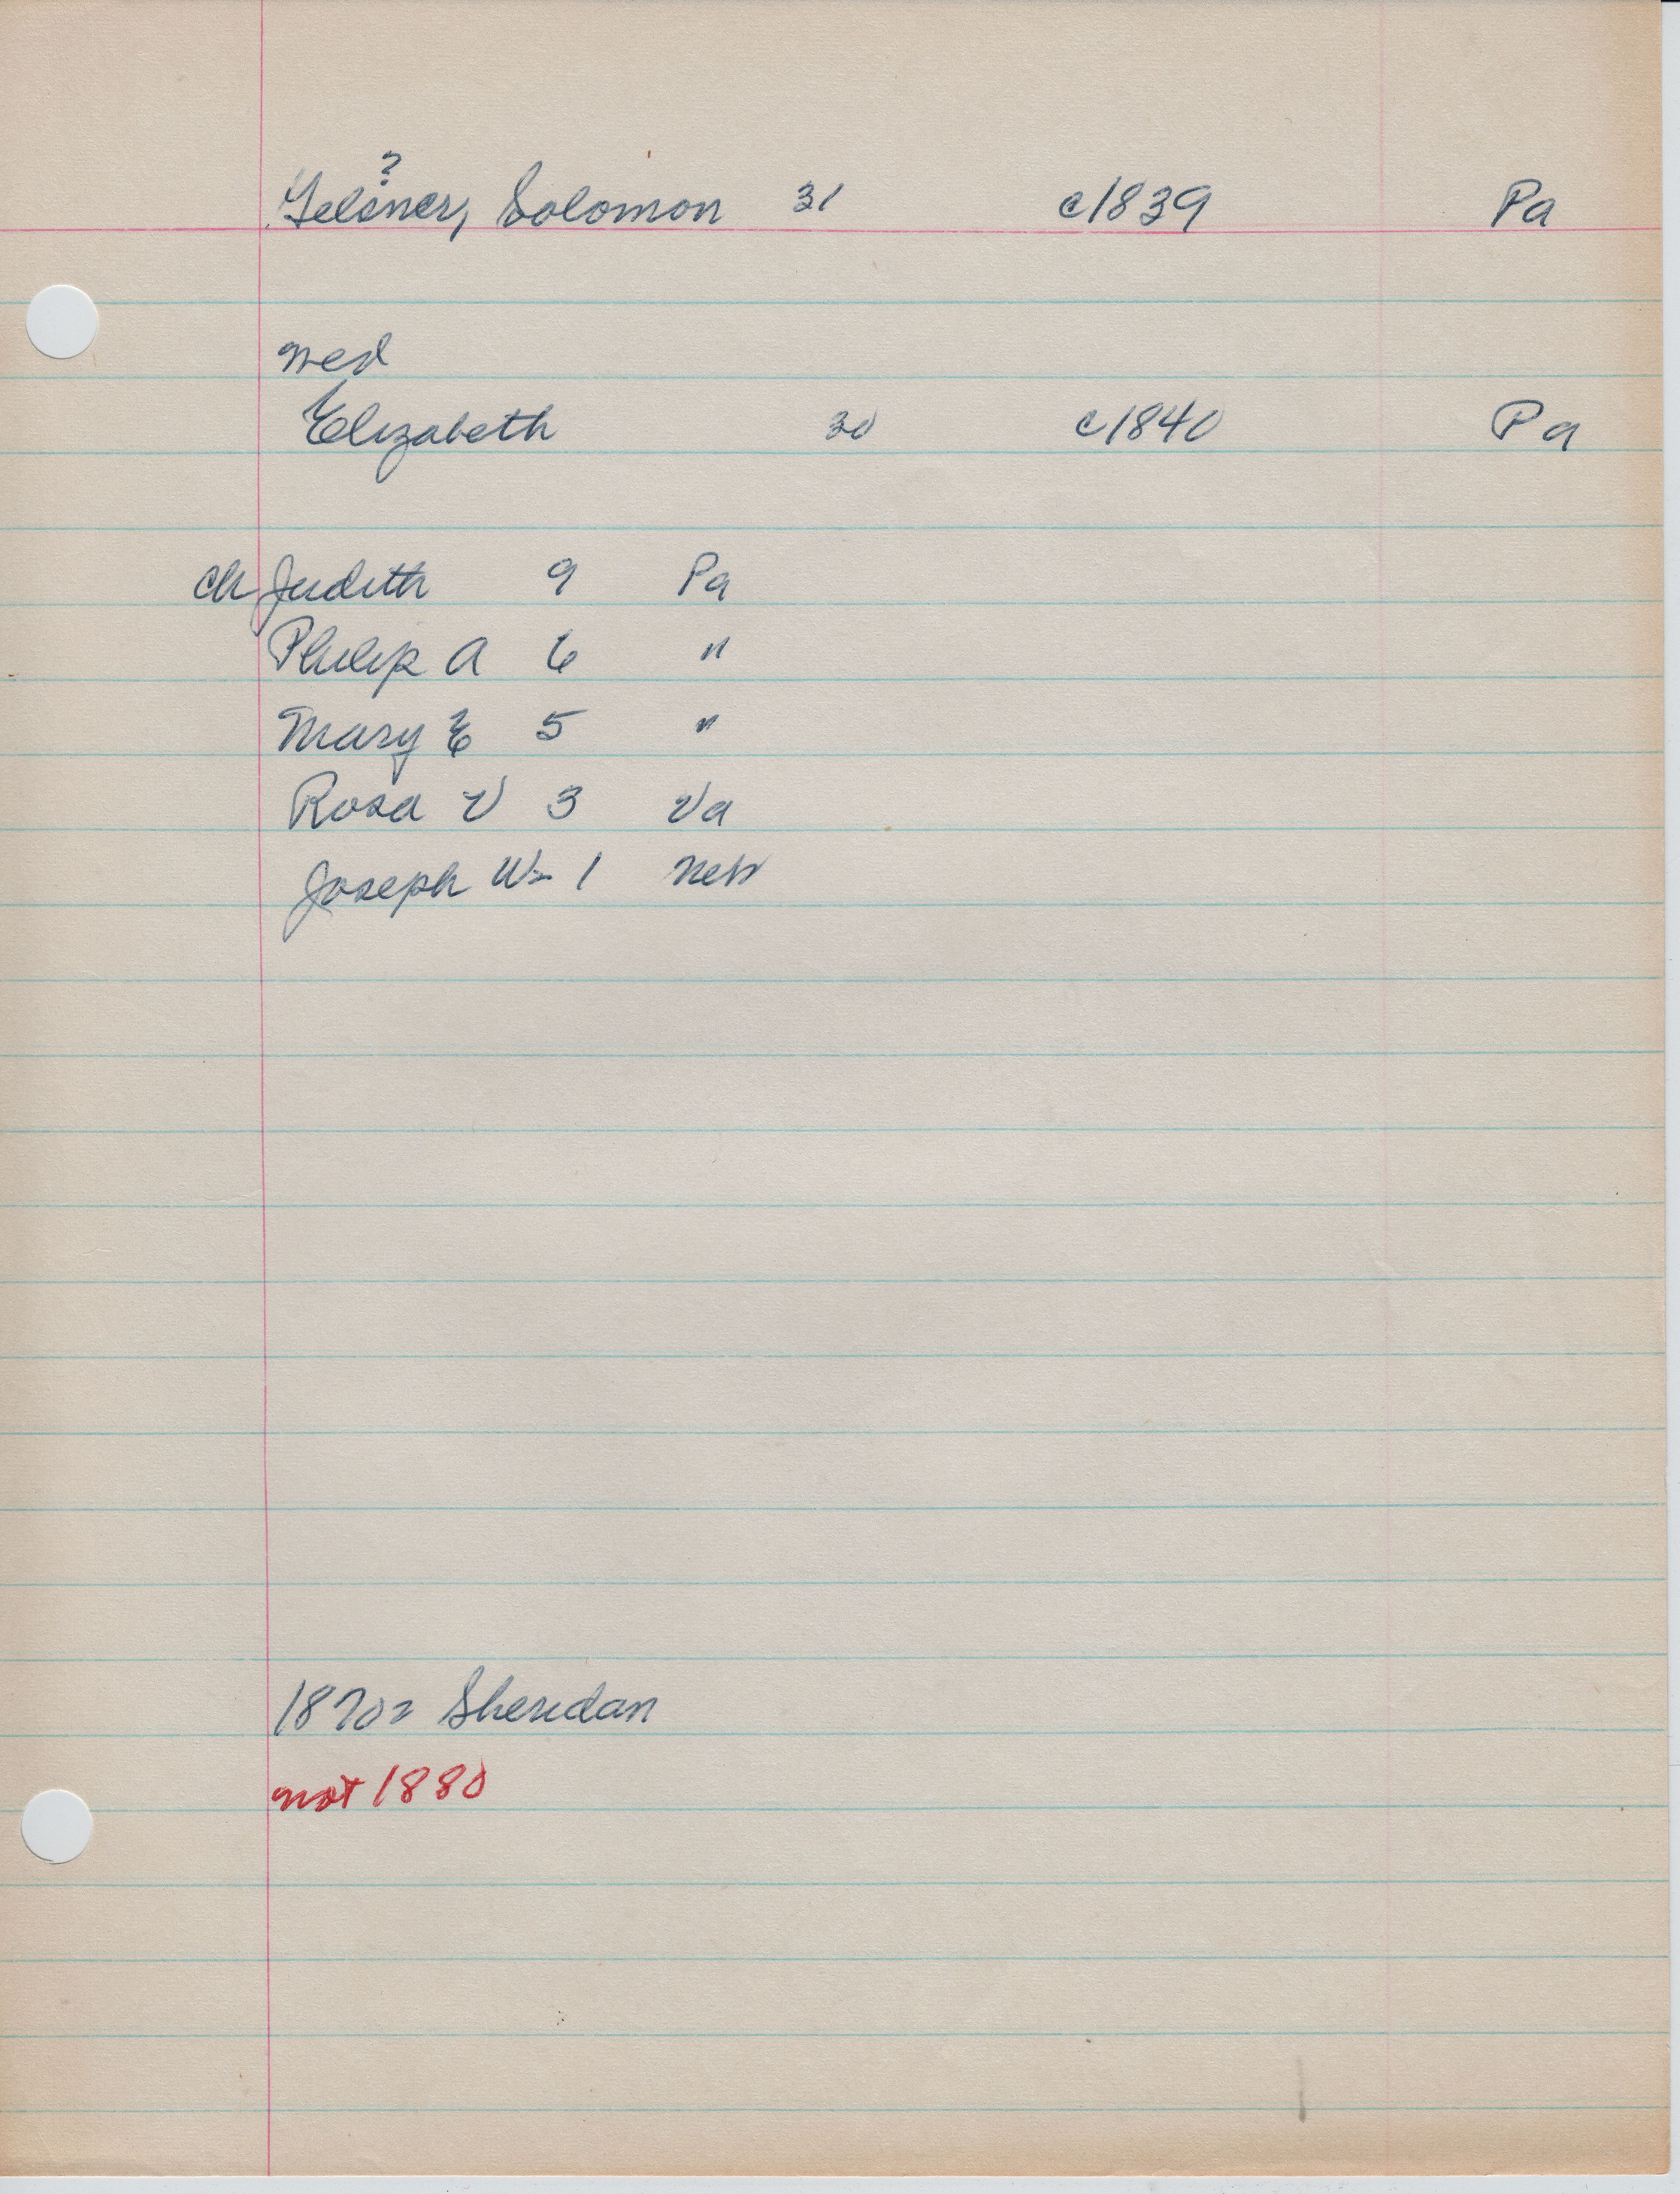 ?
Gelsner, Solomon 31 c1839 Pa
med
Elizabeth 30 c1840 Pa
ch Judith 9 Pa
Philip A 6 "
Mary E 5 "
Rosa V 3 Va
Joseph Wm 1 Neb
1870 = Sheridan
not 1880